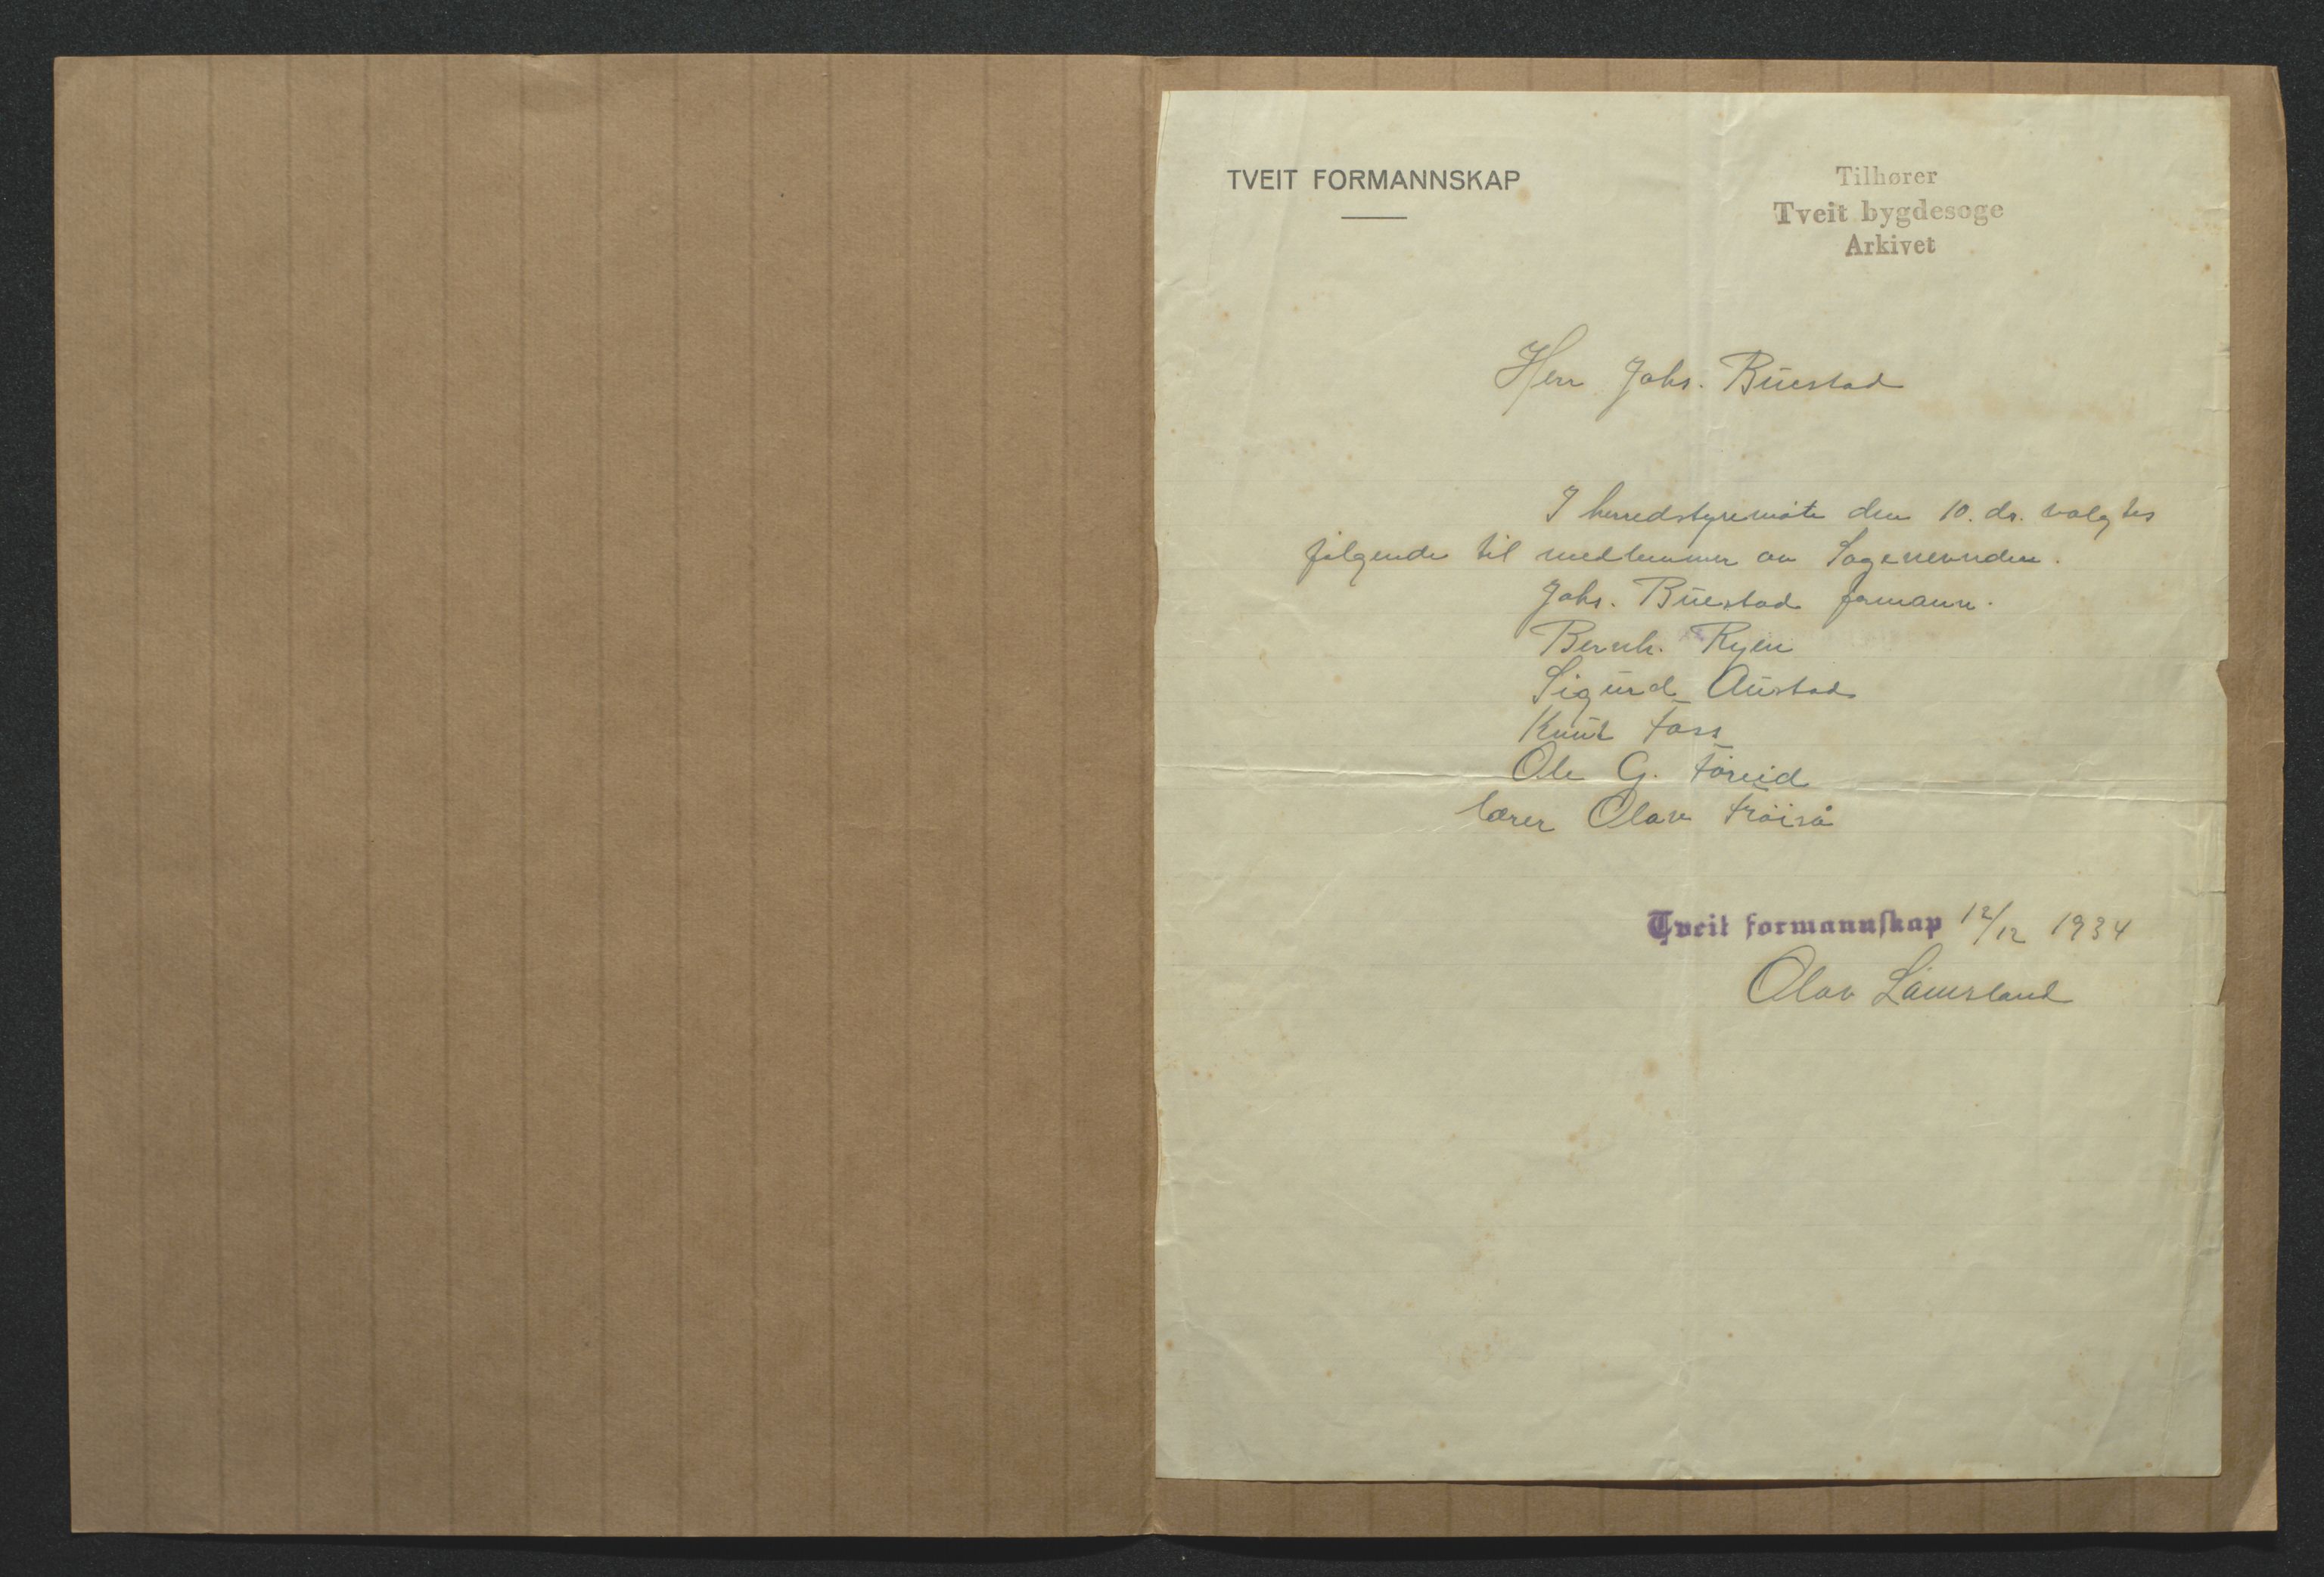 TVEIT FORMANNSKAP
Tilhører
Tveit bygdesoge
Arkivet
Herr Johs. Buestad
I herredstyremöte den 10. ds. valgtes
følgende til medlemmer av Sogenevnden.
Johs. Buestad formann.
Bernh. Ryen
Sigurd Austad
Knut Foss
Ole G. Föreid
lærer Olav Fröiså
Tveit formannskap 12/12 1934
Olav Lamsland